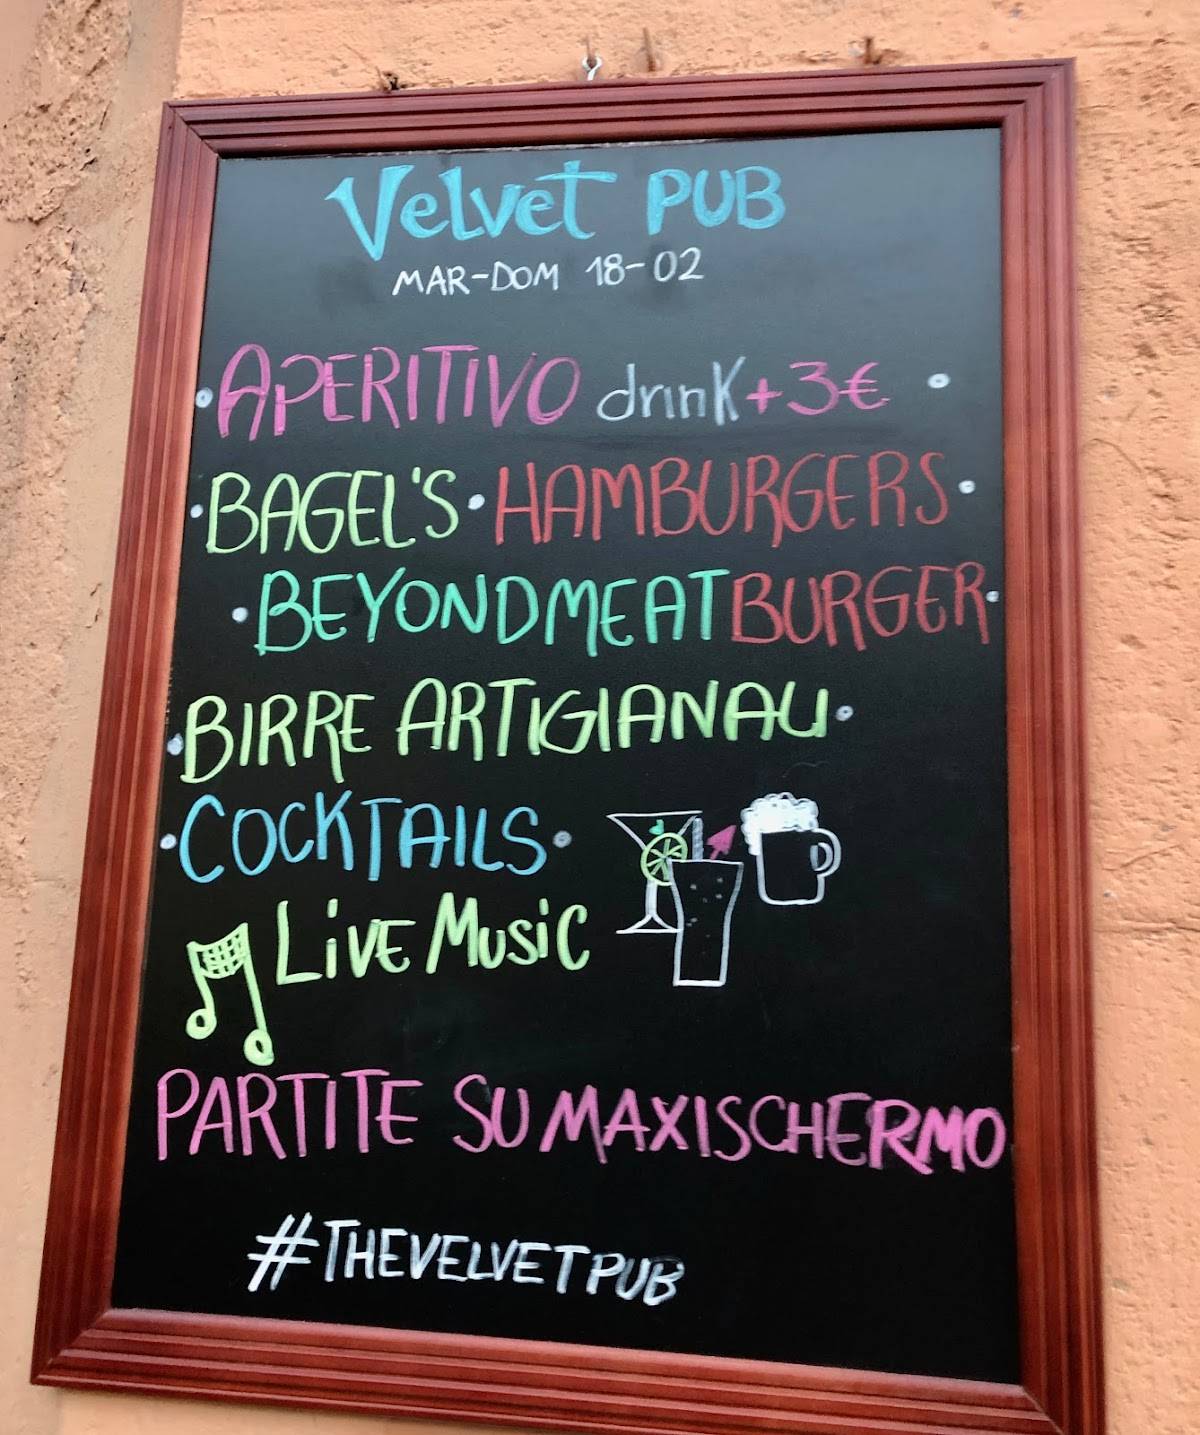 Velvet PUB
MAR-DOM 18-02
• APERITIVO drink+3€ •
• BAGEL'S • HAMBURGERS •
• BEYONDMEAT BURGER •
• BIRRE ARTIGIANALI •
• COCKTAILS •
LiVE MUSiC
PARTITE SU MAXISCHERMO
#THEVELVETPUB